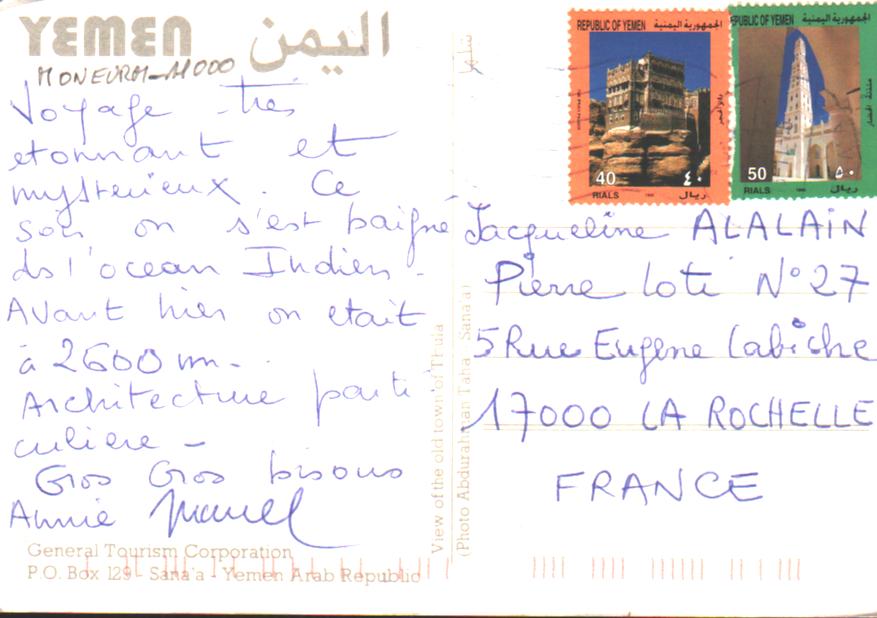 YEMEN اليمن
Voyage très
etonnant et
mysterieux. Ce
soir on s'est baigné
ds l'ocean Indien.
Avant hier on etait
à 2600 m.
Architecture parti
culiere -
Gros Gros bisous
Annie Marcel
General Tourism Corporation
P.O. Box 129 - Sana'a - Yemen Arab Republic
View of the old town of Thula
(Photo Abdurahman Taha - Sana'a)
REPUBLIC OF YEMEN الجمهورية اليمنية
40 ٤٠
RIALS ريال
REPUBLIC OF YEMEN الجمهورية اليمنية
50 ٥٠
RIALS ريال
Jacqueline ALALAIN
Pierre Loti N° 27
5 Rue Eugene Labiche
17000 LA ROCHELLE
FRANCE